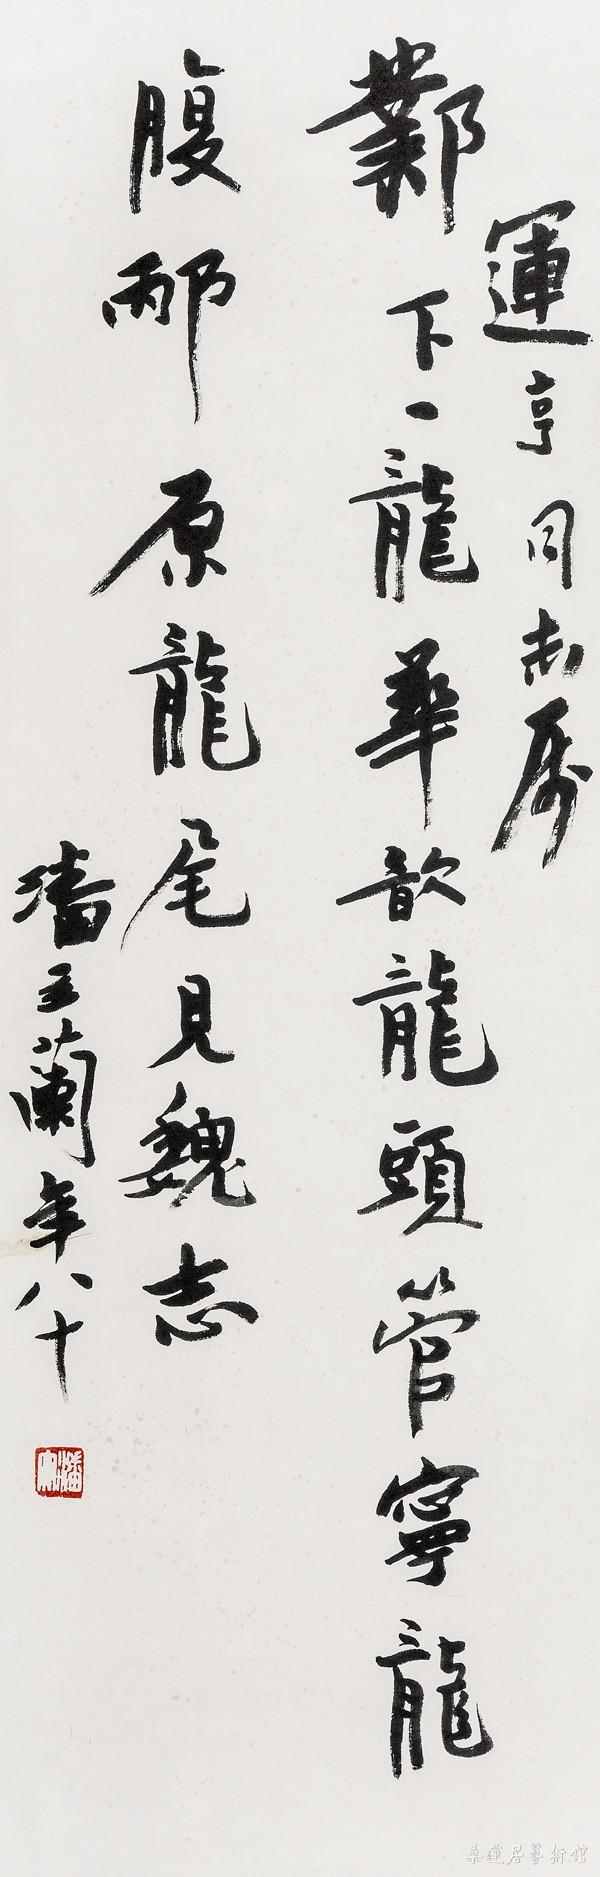 運亨同志属
鄴下一龍華歆龍頭管寧龍
腹邴原龍尾見魏志
潘主蘭年八十
潘
桑蓮居藝術館